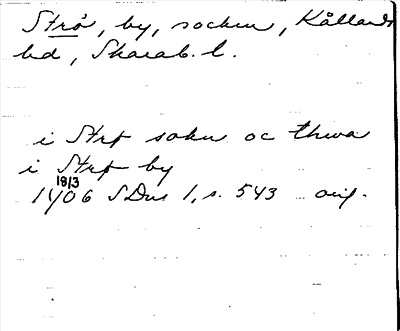 Strö, by, socken, Kållands
hd, Skarab. l.
i Strø sokn oc thwa
i Strø by
18/3
1406 SDns 1, s. 543 orig.